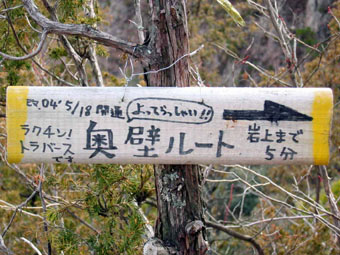 04' 5/18 開通
よってらっしゃい!!
ラクチン!
トラバース
です
奥壁ルート
岩上まで
5分